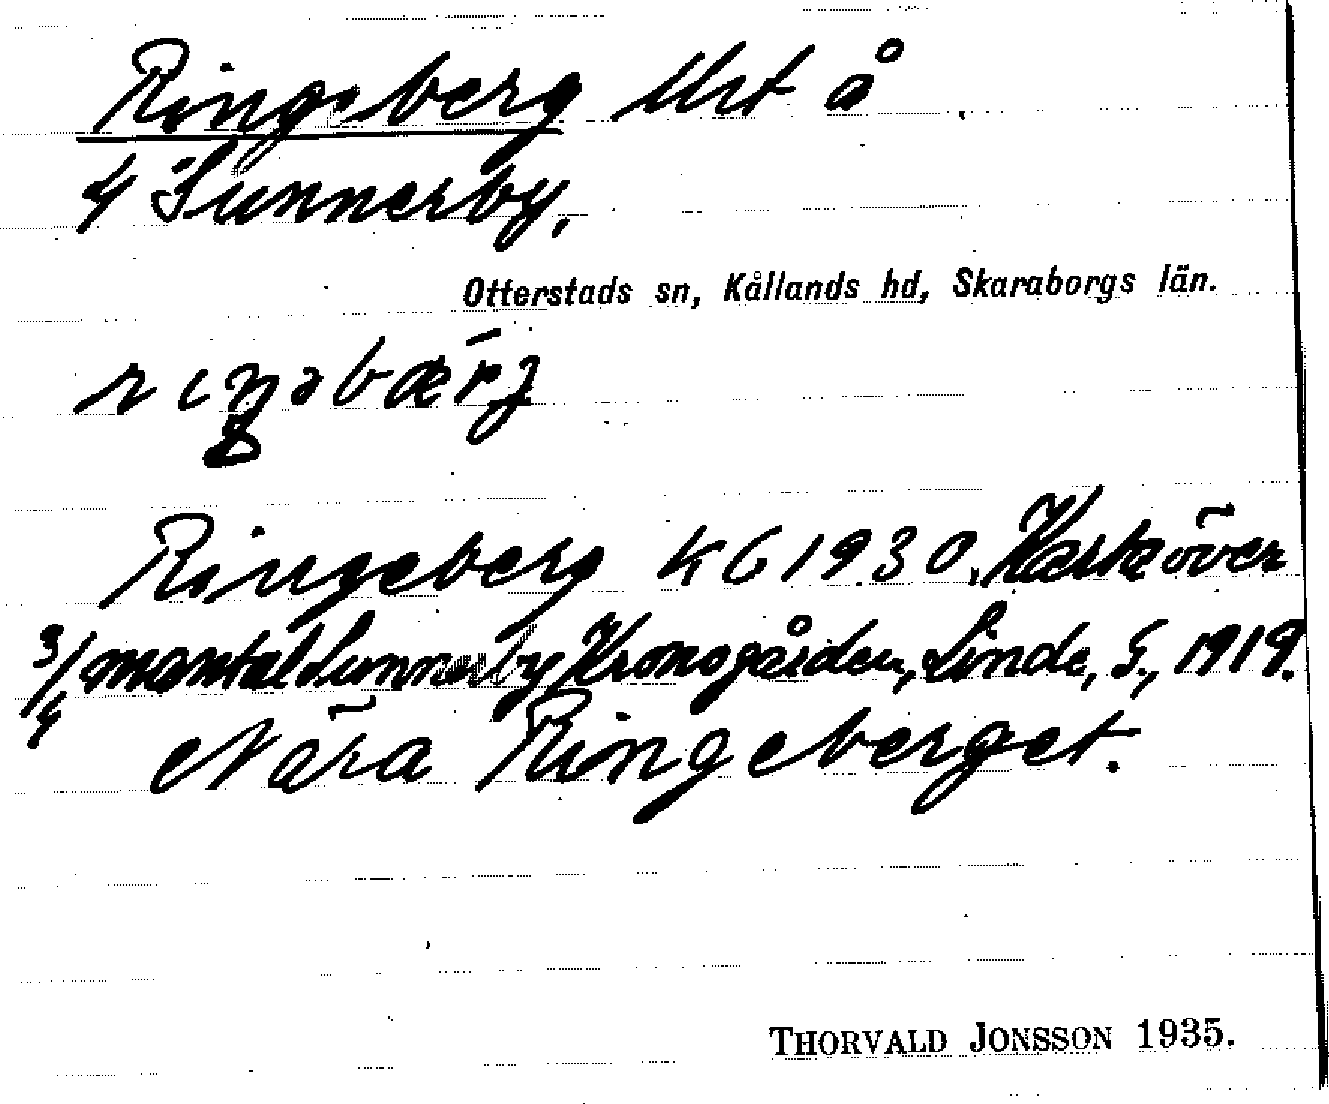 Ringeberg Urt å
4 Sunnerby,
Otterstads sn, Kållands hd, Skaraborgs län.
rıŋəbærj
Ringeberg KG 1930. Karta över
3/4 mantal Sunnerby Kronogården, Linde, G., 1919.
Nära Ringeberget.
THORVALD JONSSON 1935.